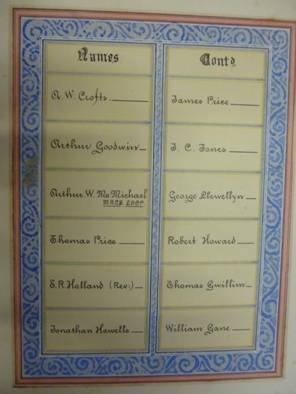 Names
A. W. Crofts
Arthur Goodwin
Arthur W. McMichael
Thomas Price
E. R. Holland (Rev:)
Jonathan Howells
Contd
James Price
J. C. Jones
George Llewellyn
Robert Howard
Thomas Gwillim
William Gane